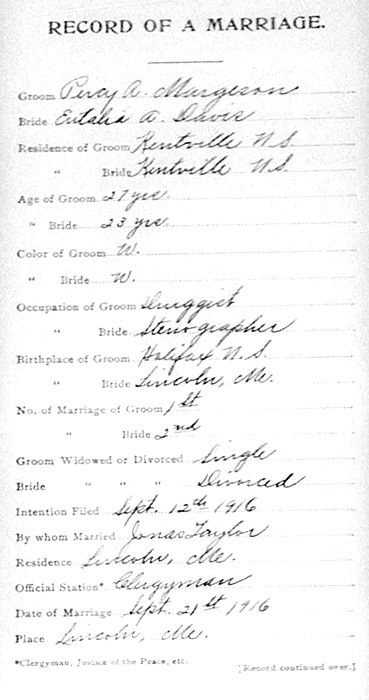 RECORD OF A MARRIAGE.
Groom Percy A. Margeson
Bride Eutalia A. Davis
Residence of Groom Kentville N.S.
" Bride Kentville N.S.
Age of Groom 27 yrs
" Bride 23 yrs
Color of Groom W.
" Bride W.
Occupation of Groom Druggist
" Bride Stenographer
Birthplace of Groom Halifax N.S.
" Bride Lincoln, Me.
No. of Marriage of Groom 1st
" Bride 2nd
Groom Widowed or Divorced Single
Bride " " " Divorced
Intention Filed Sept. 12th 1916
By whom Married Jonas Taylor
Residence Lincoln, Me.
Official Station* Clergyman
Date of Marriage Sept. 21st 1916
Place Lincoln, Me.
*Clergyman, Justice of the Peace, etc. [Record continued over.]